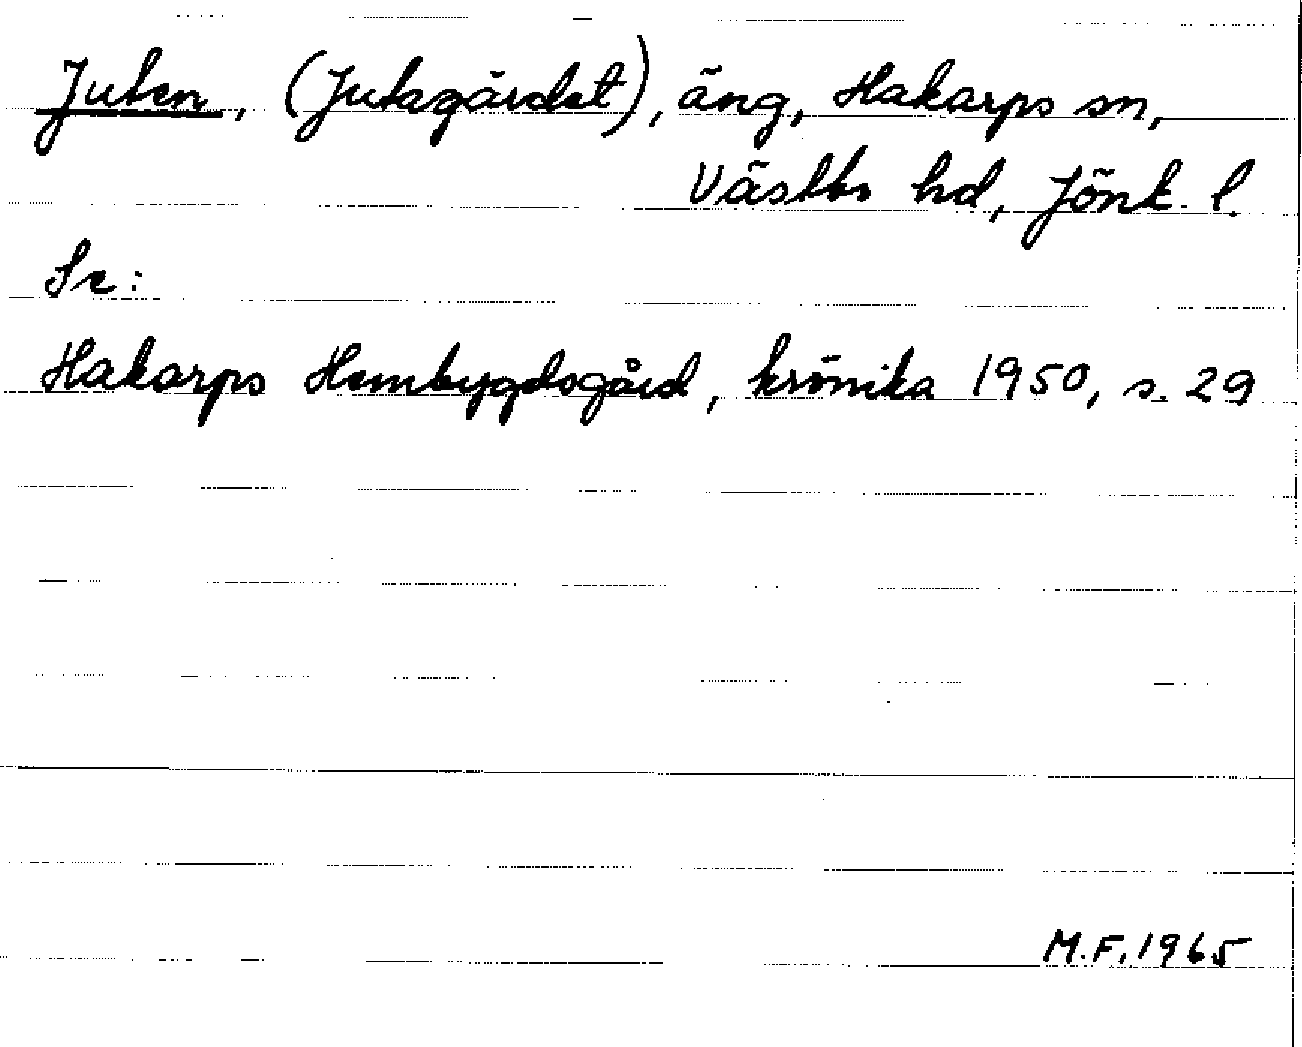 Juten, (Jutagärdet), äng, Hakarps sn,
Västbo hd, Jönk. l.
Se:
Hakarps Hembygdsgård, krönika 1950, s. 29
M.F. 1965